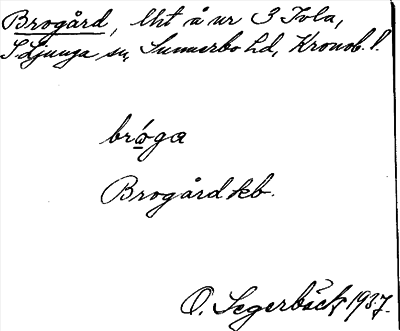 Brogård, lht å nr 3 Tola,
S. Ljunga sn, Sunnerbo hd, Kronob. l.
bróga
Brogård kb.
O. Segerbäck 1937.